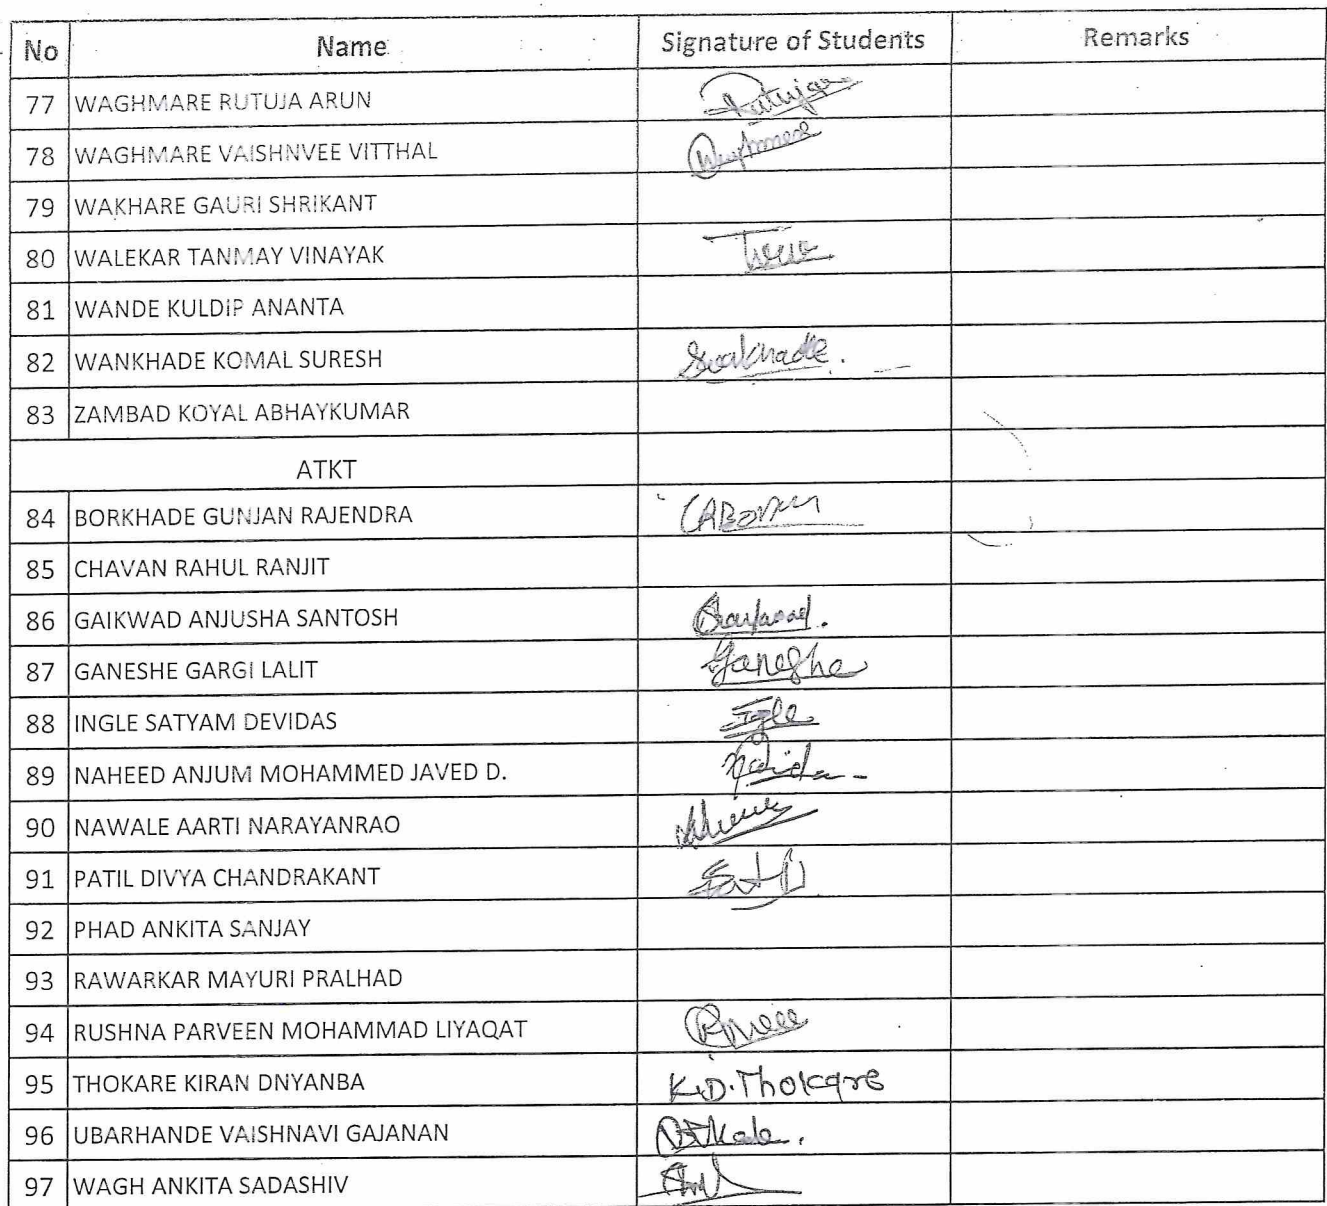 No Name Signature of Students Remarks
77 WAGHMARE RUTUJA ARUN Rutuja
78 WAGHMARE VAISHNVEE VITTHAL
79 WAKHARE GAURI SHRIKANT
80 WALEKAR TANMAY VINAYAK
81 WANDE KULDIP ANANTA
82 WANKHADE KOMAL SURESH
83 ZAMBAD KOYAL ABHAYKUMAR
ATKT
84 BORKHADE GUNJAN RAJENDRA
85 CHAVAN RAHUL RANJIT
86 GAIKWAD ANJUSHA SANTOSH
87 GANESHE GARGI LALIT Ganeshe
88 INGLE SATYAM DEVIDAS
89 NAHEED ANJUM MOHAMMED JAVED D.
90 NAWALE AARTI NARAYANRAO
91 PATIL DIVYA CHANDRAKANT
92 PHAD ANKITA SANJAY
93 RAWARKAR MAYURI PRALHAD
94 RUSHNA PARVEEN MOHAMMAD LIYAQAT
95 THOKARE KIRAN DNYANBA K.D.Thokare
96 UBARHANDE VAISHNAVI GAJANAN
97 WAGH ANKITA SADASHIV